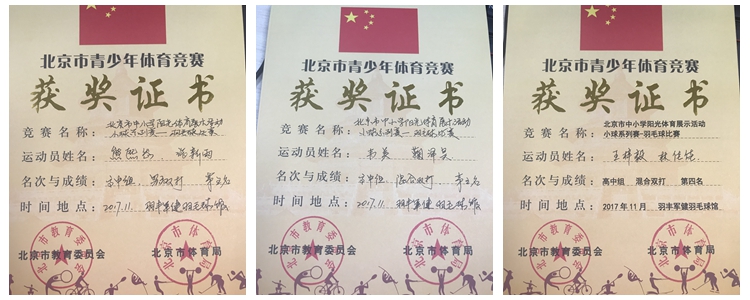 北京市青少年体育竞赛
获奖证书
北京市中小学阳光体育展示活动
竞赛名称：小球系列赛一羽毛球比赛
运动员姓名：熊熙
名次与成绩：高中组 男子双打
时间地点：2017.11. 羽丰军健羽毛球馆
北京市教育委员会 北京市体育局
北京市青少年体育竞赛
获奖证书
北京市中小学阳光体育展示活动
竞赛名称：小球系列赛一羽毛球比赛
运动员姓名：
名次与成绩：高中组 混合双打
时间地点：2017.11. 羽丰军健羽毛球馆
北京市教育委员会 北京市体育局
北京市青少年体育竞赛
获奖证书
北京市中小学阳光体育展示活动
竞赛名称：小球系列赛-羽毛球比赛
运动员姓名：
名次与成绩：高中组 混合双打 第四名
时间地点：2017年11月 羽丰军健羽毛球馆
北京市教育委员会 北京市体育局